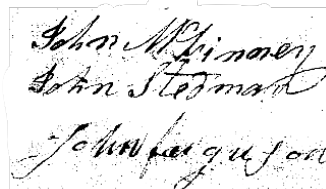 John McKinney
John Stedman
John ferguson